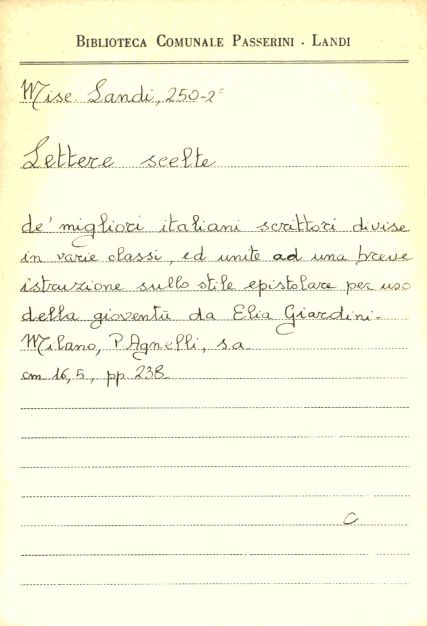 BIBLIOTECA COMUNALE PASSERINI - LANDI
Misc. Landi, 250-2°
Lettere scelte
de' migliori italiani scrittori divise
in varie classi, ed unite ad una breve
istruzione sullo stile epistolare per uso
della gioventù da Elia Giardini-
Milano, P. Agnelli, s.a.
cm 16,5, pp 238
C